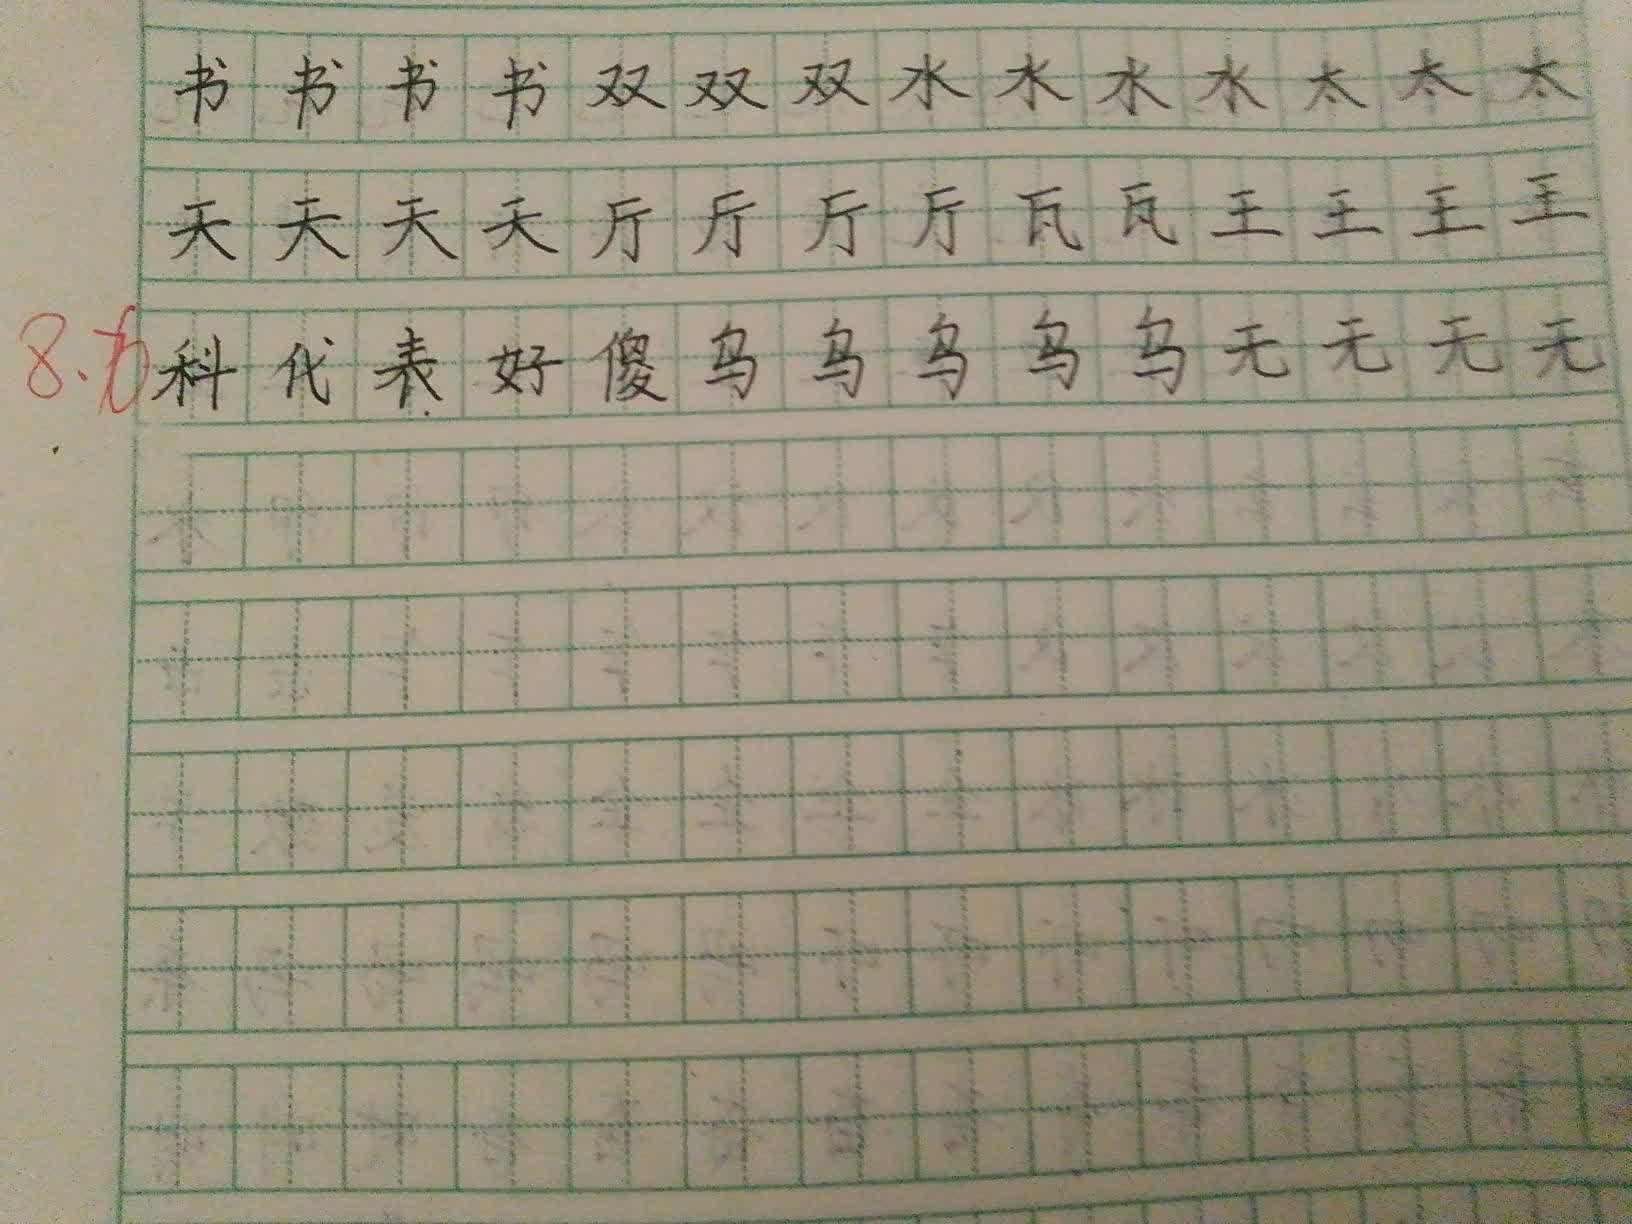 书书书书双双双水水水水太太太
天天天天厅厅厅厅瓦瓦王王王王
8.
科代表好傻乌乌乌乌乌无无无无